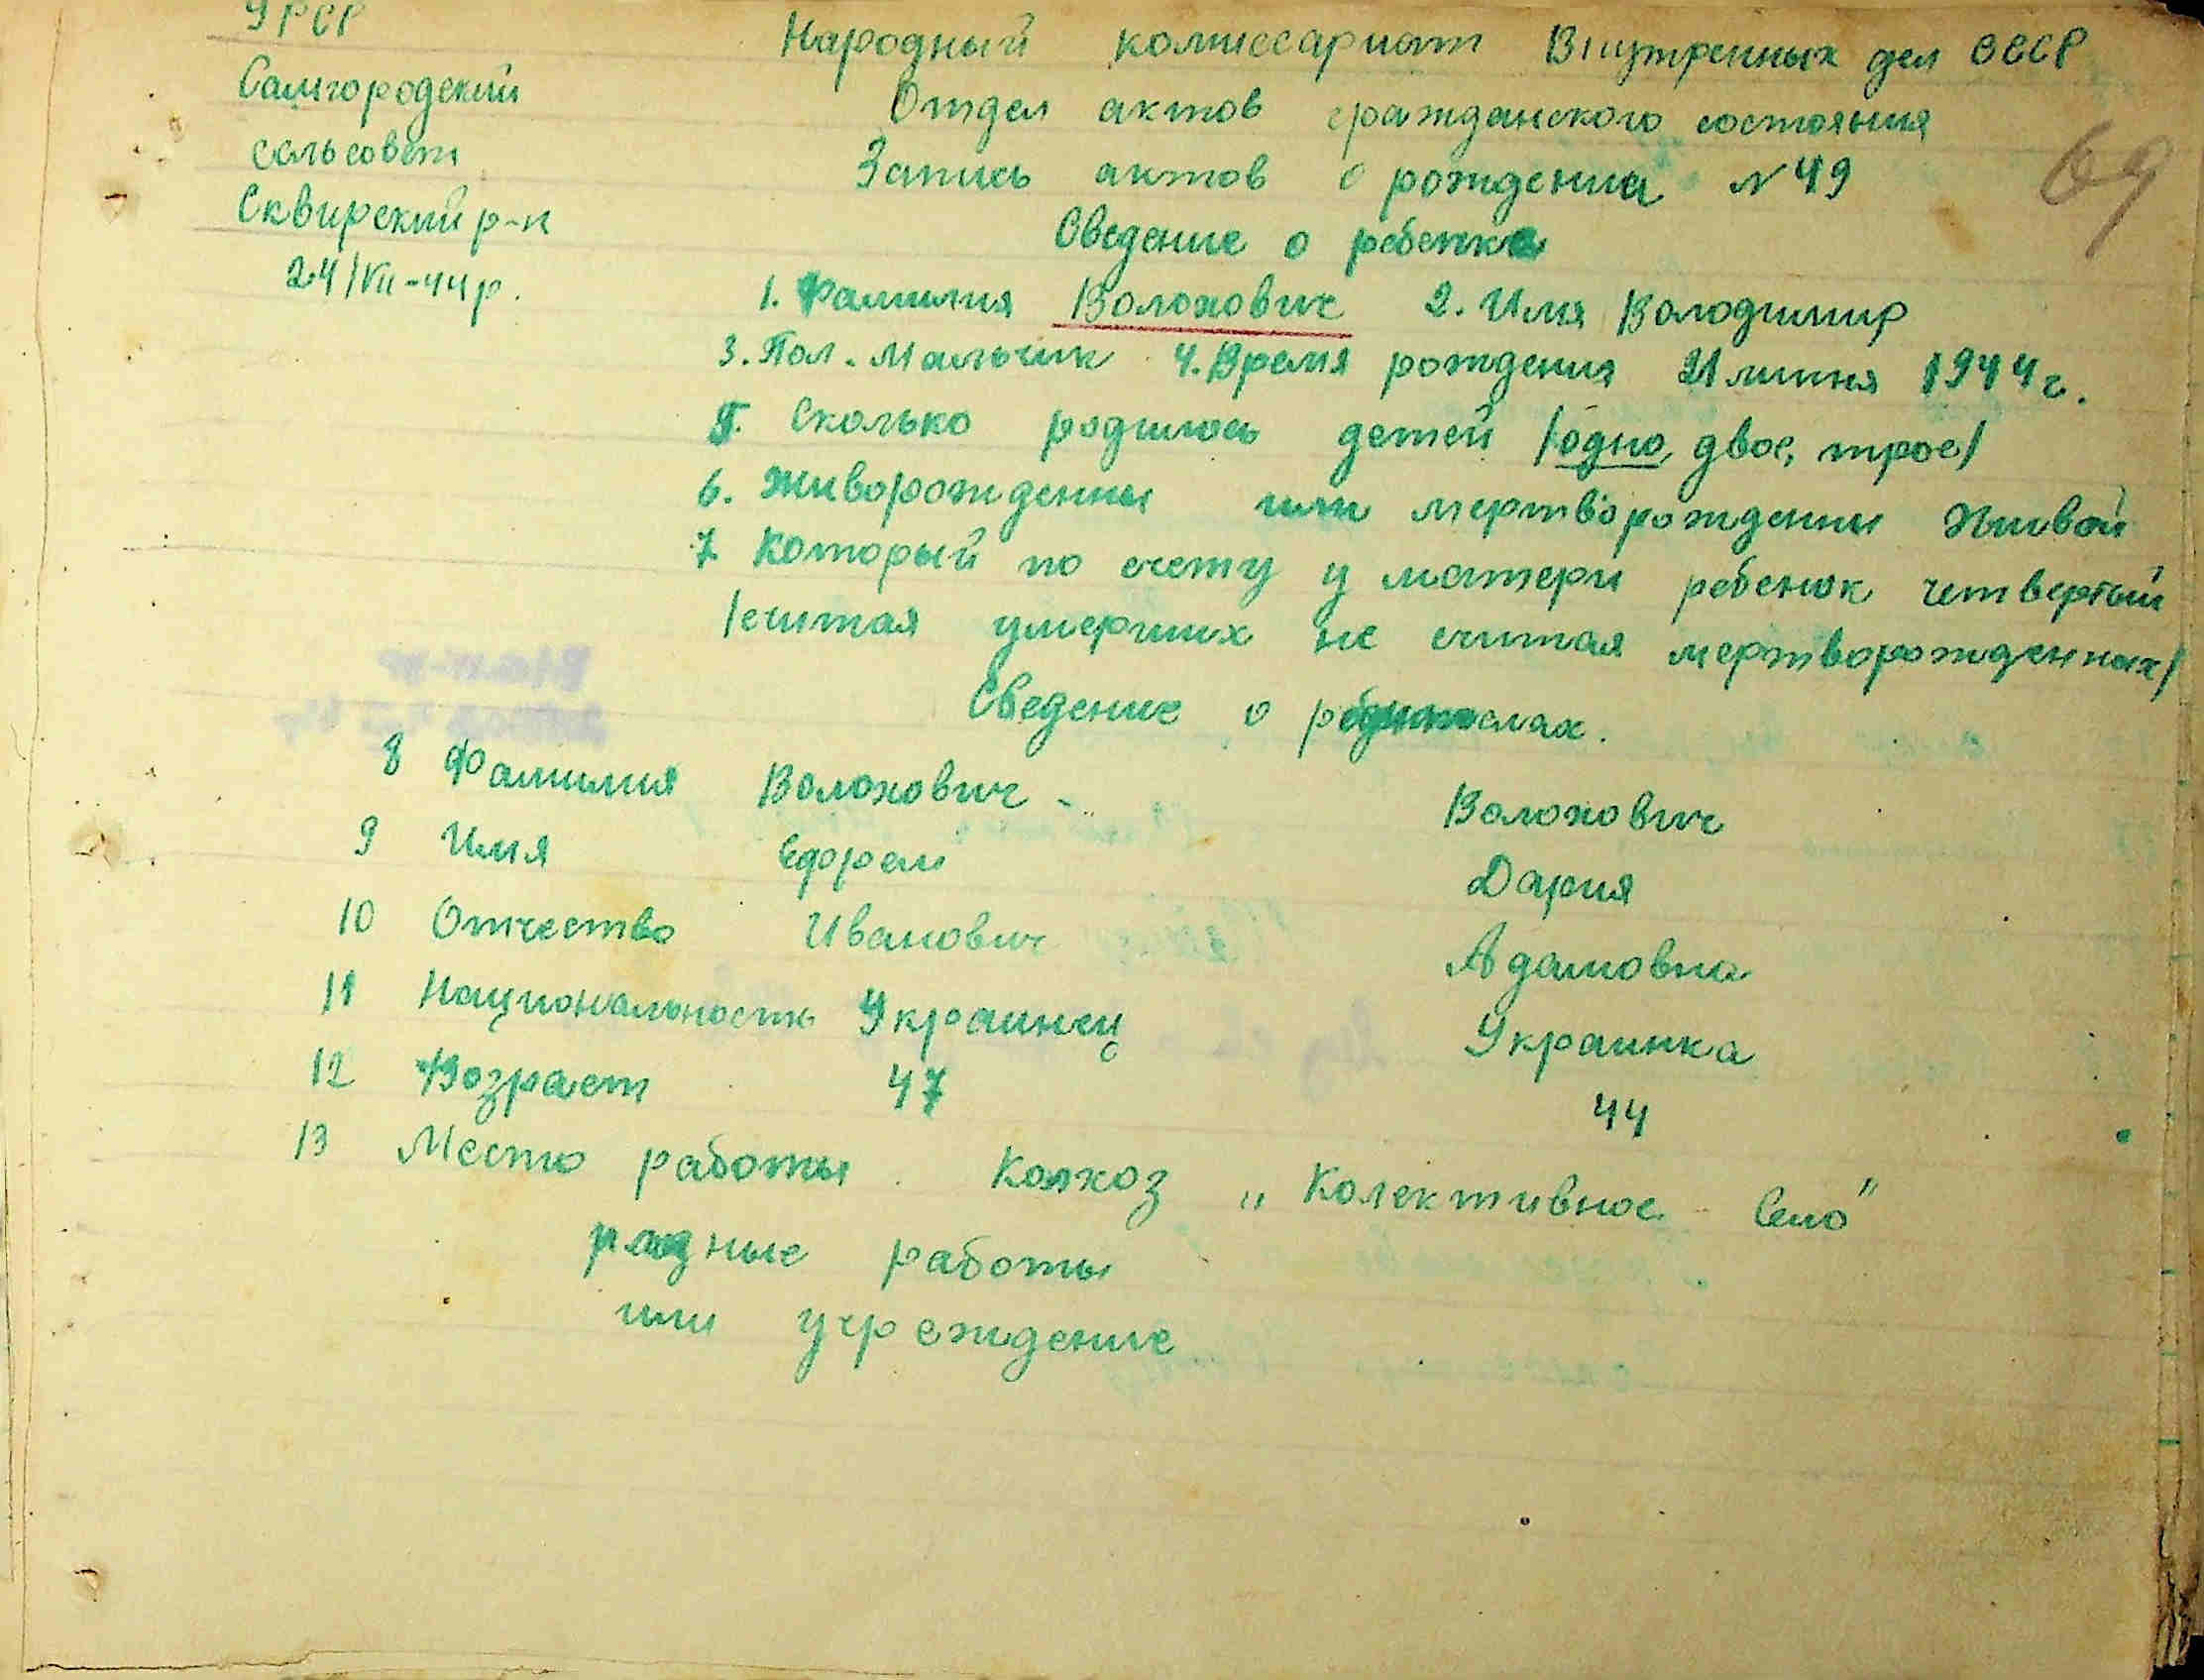 УРСР
Самгородский
сельсовет
Сквирский р-н
24/VII-44р.
Народный комиссариат Внутренных дел СССР
Отдел актов гражданского состояния
Запись актов о рождении N 49
69
Сведение о ребенке
1. Фамилия Волохович 2. Имя Володимир
3. Пол. Мальчик 4. Время рождения 21 липня 1944 г.
5. Сколько родилось детей /одно, двое, трое/
6. Живорожденны или мертворожденны живой
7 Который по счету у матери ребенок четвертый
/считая умерших не считая мертворожденных/
Сведение о родителах.
8 Фамилия Волохович - Волохович
9 Имя Ефрем Дария
10 Отчество Иванович Адамовна
11 Национальность Украинец Украинка
12 Возраст 47 44
13 Место работы. Колхоз „Колективное Село"
разные работы
или учреждение